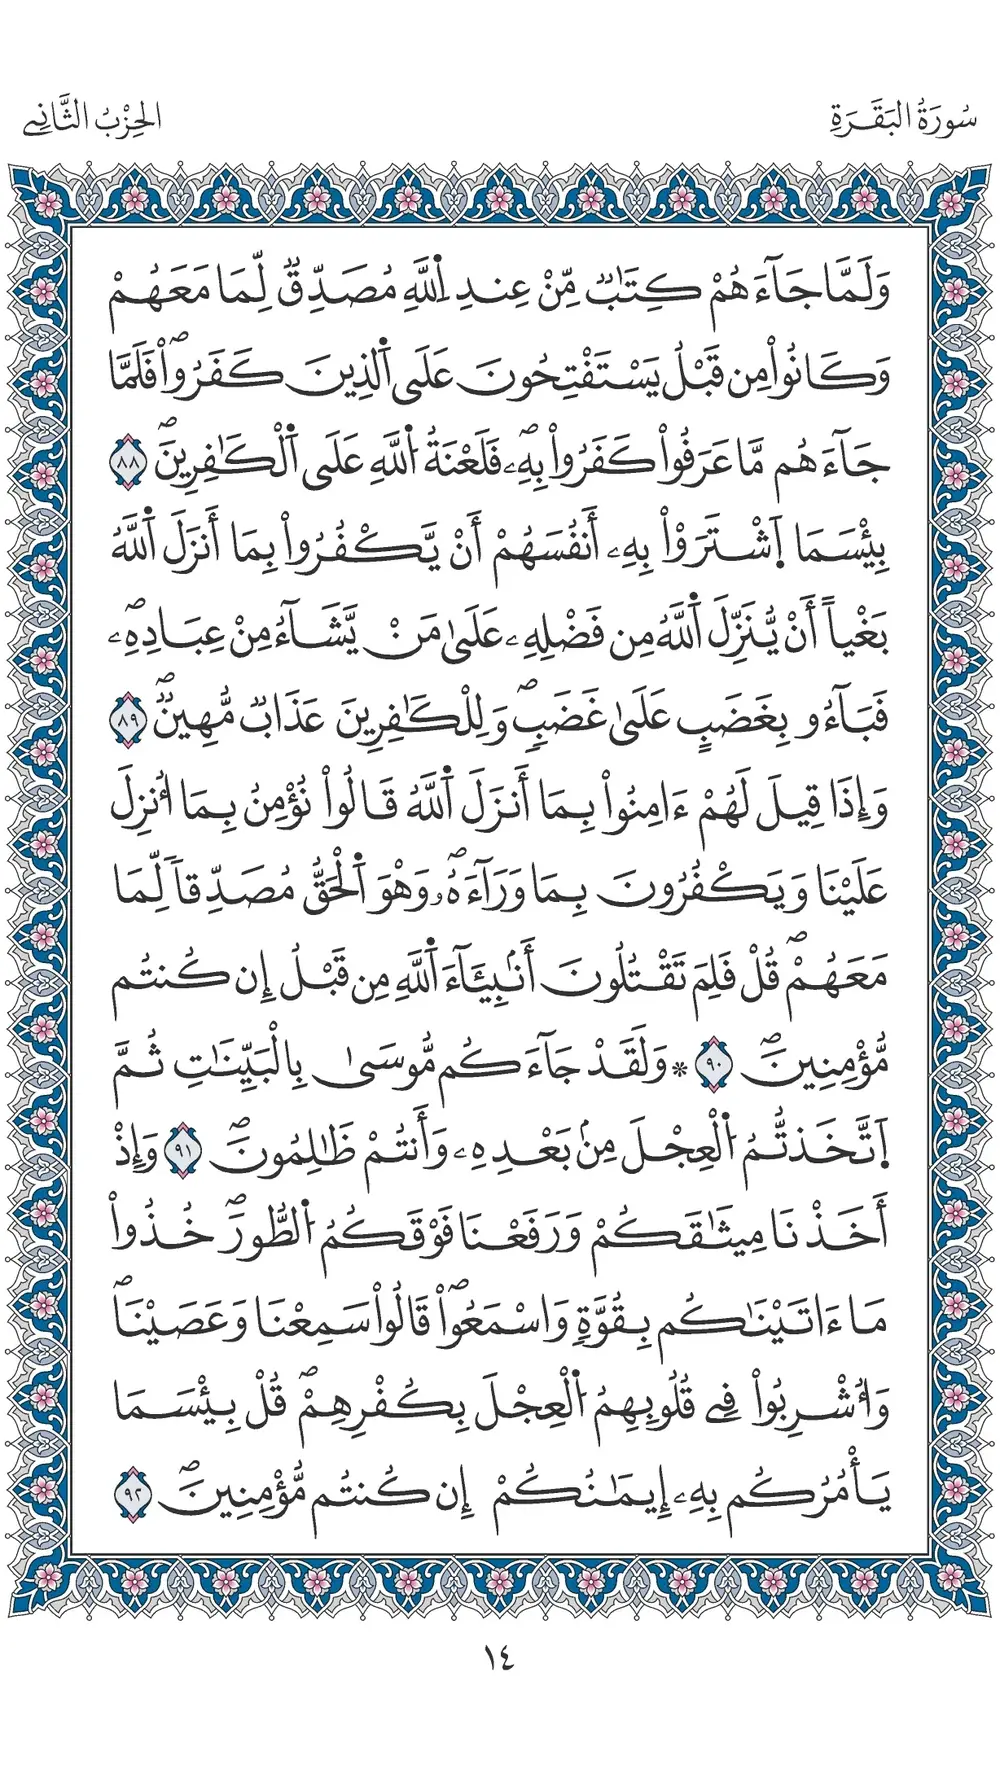 سُورَةُ البَقَرَةِ
الحِزْبُ الثَّانِي
وَلَمَّا جَآءَهُمْ كِتَٰبٌ مِّنْ عِندِ اِ۬للَّهِ مُصَدِّقٌ لِّمَا مَعَهُمْ
وَكَانُواْ مِن قَبْلُ يَسْتَفْتِحُونَ عَلَى اَ۬لذِينَ كَفَرُواْۖ فَلَمَّا
جَآءَهُم مَّا عَرَفُواْ كَفَرُواْ بِهِۦۖ فَلَعْنَةُ اُ۬للَّهِ عَلَى اَ۬لْكَٰفِرِينَۖ ٨٨
بِيسَمَا اَ۪شْتَرَوْاْ بِهِۦٓ أَنفُسَهُمْ أَنْ يَّكْفُرُواْ بِمَا أَنزَلَ اَ۬للَّهُ
بَغْياً أَنْ يُّنَزِّلَ اَ۬للَّهُ مِن فَضْلِهِۦ عَلَىٰ مَنْ يَّشَآءُ مِنْ عِبَادِهِۦۖ
فَبَآءُو بِغَضَبٍ عَلَىٰ غَضَبٍۖ وَلِلْكَٰفِرِينَ عَذَابٌ مُّهِينٌۖ ٨٩
وَإِذَا قِيلَ لَهُمْ ءَامِنُواْ بِمَا أَنزَلَ اَ۬للَّهُ قَالُواْ نُؤْمِنُ بِمَا أُنزِلَ
عَلَيْنَا وَيَكْفُرُونَ بِمَا وَرَآءَهُۥۖ وَهْوَ اَ۬لْحَقُّ مُصَدِّقاً لِّمَا
مَعَهُمْۖ قُلْ فَلِمَ تَقْتُلُونَ أَنۢبِيَٓـَٔآءَ اَ۬للَّهِ مِن قَبْلُ إِن كُنتُم
مُّؤْمِنِينَۖ ٩٠ * وَلَقَدْ جَآءَكُم مُّوسَىٰ بِالْبَيِّنَٰتِ ثُمَّ
اَ۪تَّخَذتُّمُ اُ۬لْعِجْلَ مِنۢ بَعْدِهِۦ وَأَنتُمْ ظَٰلِمُونَۖ ٩١ وَإِذْ
أَخَذْنَا مِيثَٰقَكُمْ وَرَفَعْنَا فَوْقَكُمُ اُ۬لطُّورَۖ خُذُواْ
مَا ءَاتَيْنَٰكُم بِقُوَّةٍ وَاسْمَعُواْۖ قَالُواْ سَمِعْنَا وَعَصَيْنَاۖ
وَأُشْرِبُواْ فِي قُلُوبِهِمُ اُ۬لْعِجْلَ بِكُفْرِهِمْۖ قُلْ بِيسَمَا
يَأْمُرُكُم بِهِۦٓ إِيمَٰنُكُمْ إِن كُنتُم مُّؤْمِنِينَۖ ٩٢
١٤